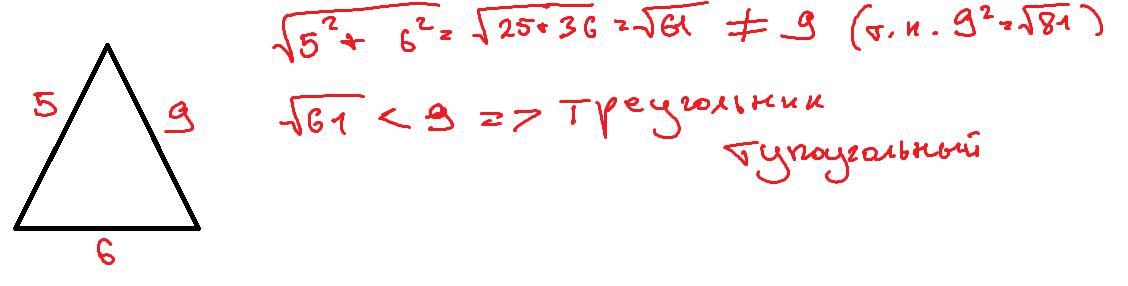 √5² + 6² = √25+36 = √61 ≠ 9 (т.к. 9² = √81)
√61 < 9 => треугольник
тупоугольный
5
9
6